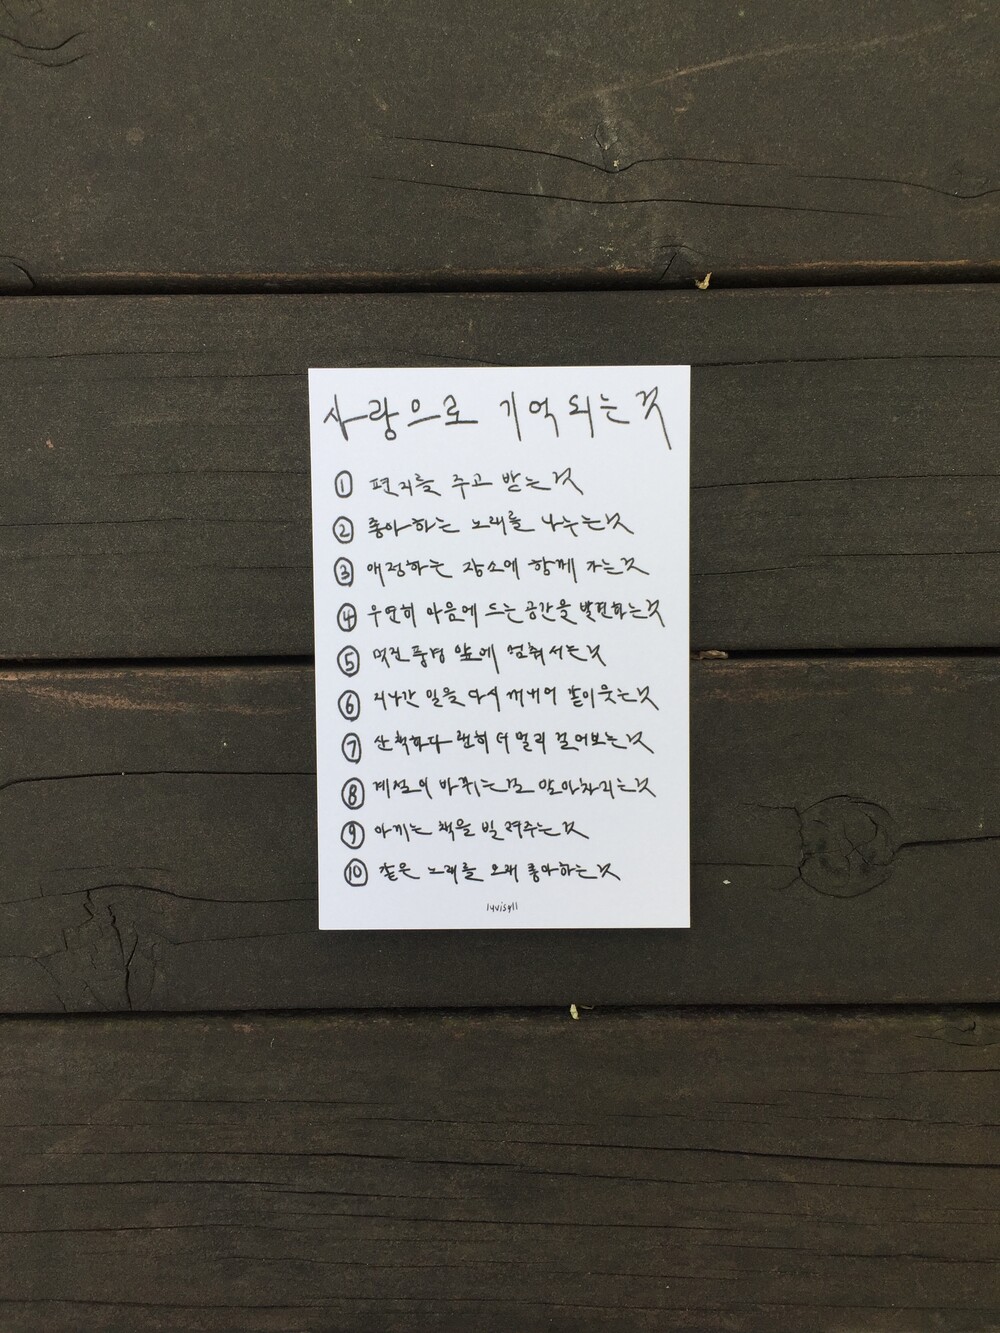 사랑으로 기억되는 것
① 편지를 주고 받는 것
② 좋아하는 노래를 나누는 것
③ 애정하는 장소에 함께 가는 것
④ 우연히 마음에 드는 공간을 발견하는 것
⑤ 멋진 풍경 앞에 멈춰서는 것
⑥ 지나간 일을 다시 꺼내어 같이 웃는 것
⑦ 산책하다 괜히 더 멀리 걸어보는 것
⑧ 계절의 바뀌는 걸 알아차리는 것
⑨ 아끼는 책을 빌려주는 것
⑩ 같은 노래를 오래 좋아하는 것